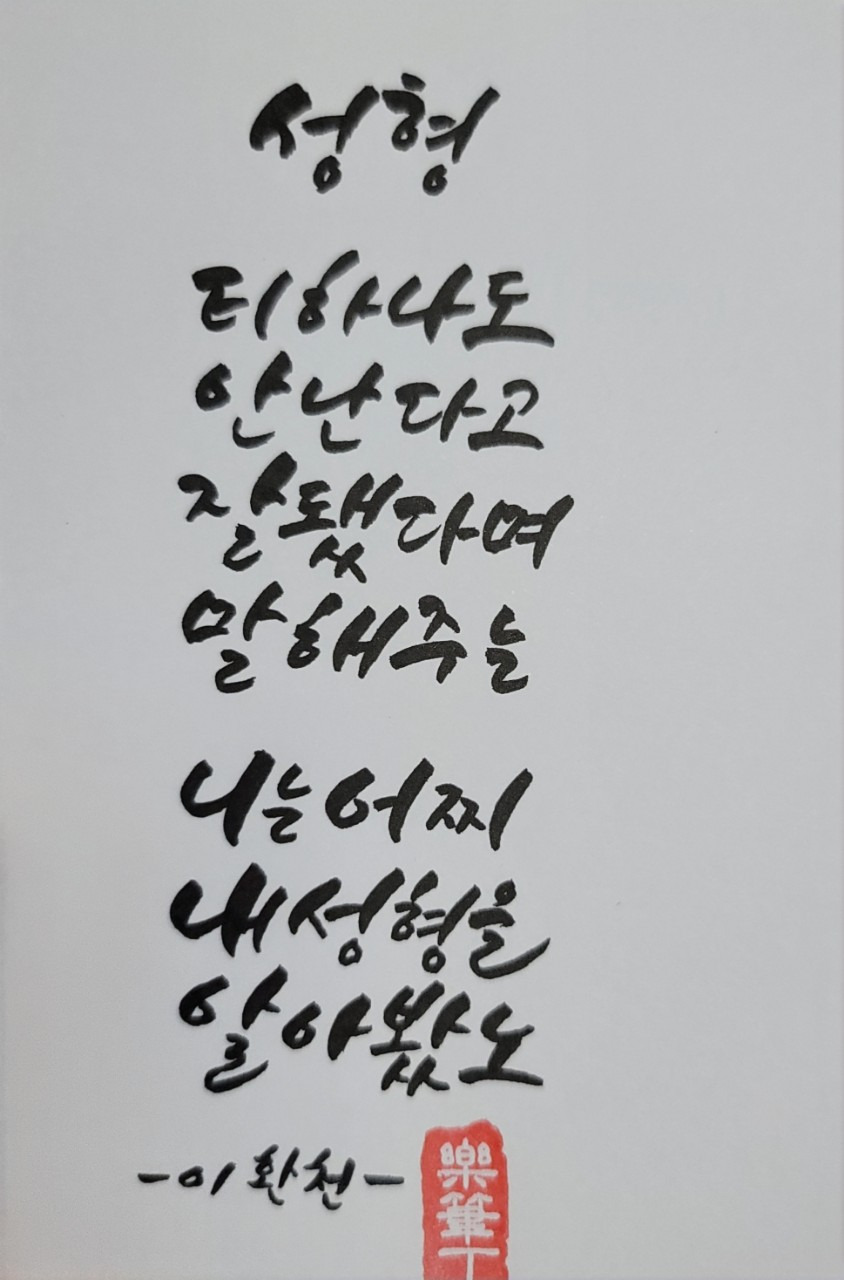 성형
티하나도
안난다고
잘됐다며
말해주는
니는어찌
내성형을
알아봤노
-이환천-
樂筆